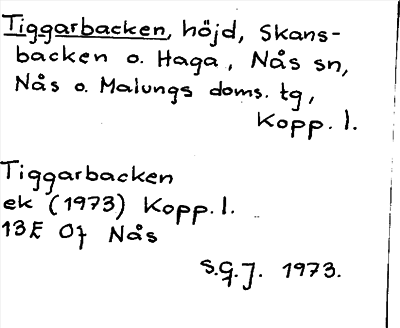 Tiggarbacken, höjd, Skans-
backen o. Haga, Nås sn,
Nås o. Malungs doms. tg,
Kopp. l.
Tiggarbacken
ek (1973) Kopp. l.
13E 0f Nås
S.G.J. 1973.